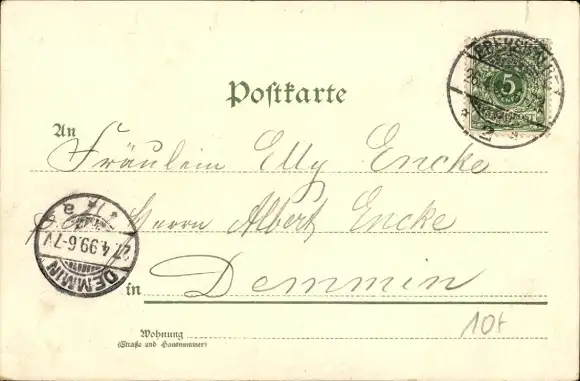 Postkarte
5
2 a
An Fräulein Elly Encke
Herrn Albert Encke
* 1 * a
4.99.6-7V
DEMMIN
in Demmin
10f
Wohnung
(Straße und Hausnummer)